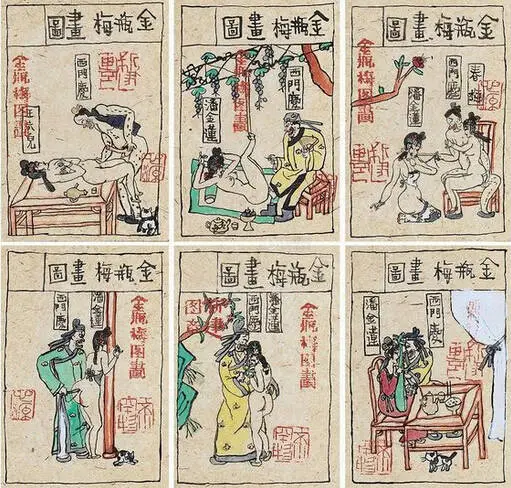 金瓶梅畫圖
西門慶
金瓶梅图畫
金瓶梅畫圖
西門慶
金瓶梅图畫
潘金蓮
金瓶梅畫圖
春梅
西門慶
潘金蓮
金瓶梅图畫
金瓶梅畫圖
潘金蓮
西門慶
金瓶梅图畫
金瓶梅畫圖
潘金蓮
西門慶
金瓶梅图畫
金瓶梅畫圖
西門慶
潘金蓮